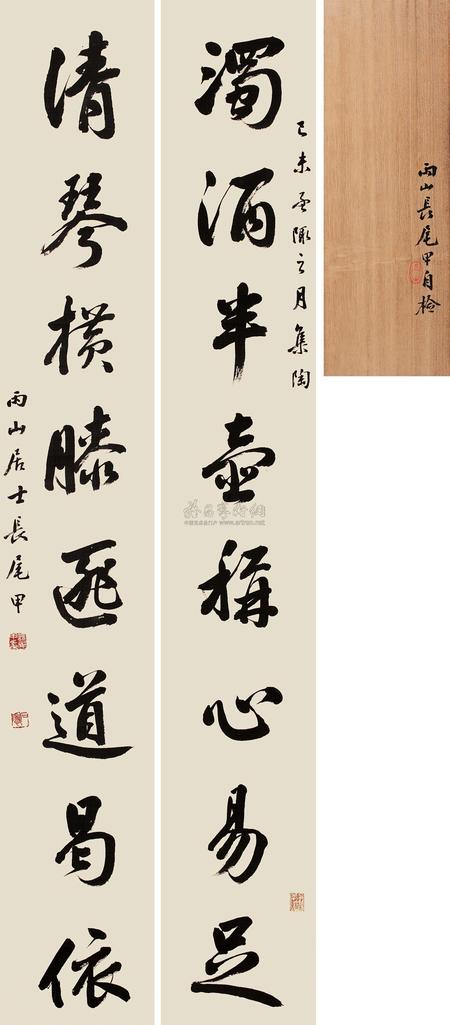 雨山長尾甲自檢
己未孟陬之月集陶
濁酒半壺稱心易足
清琴橫膝匪道曷依
雨山居士長尾甲
www.artron.net